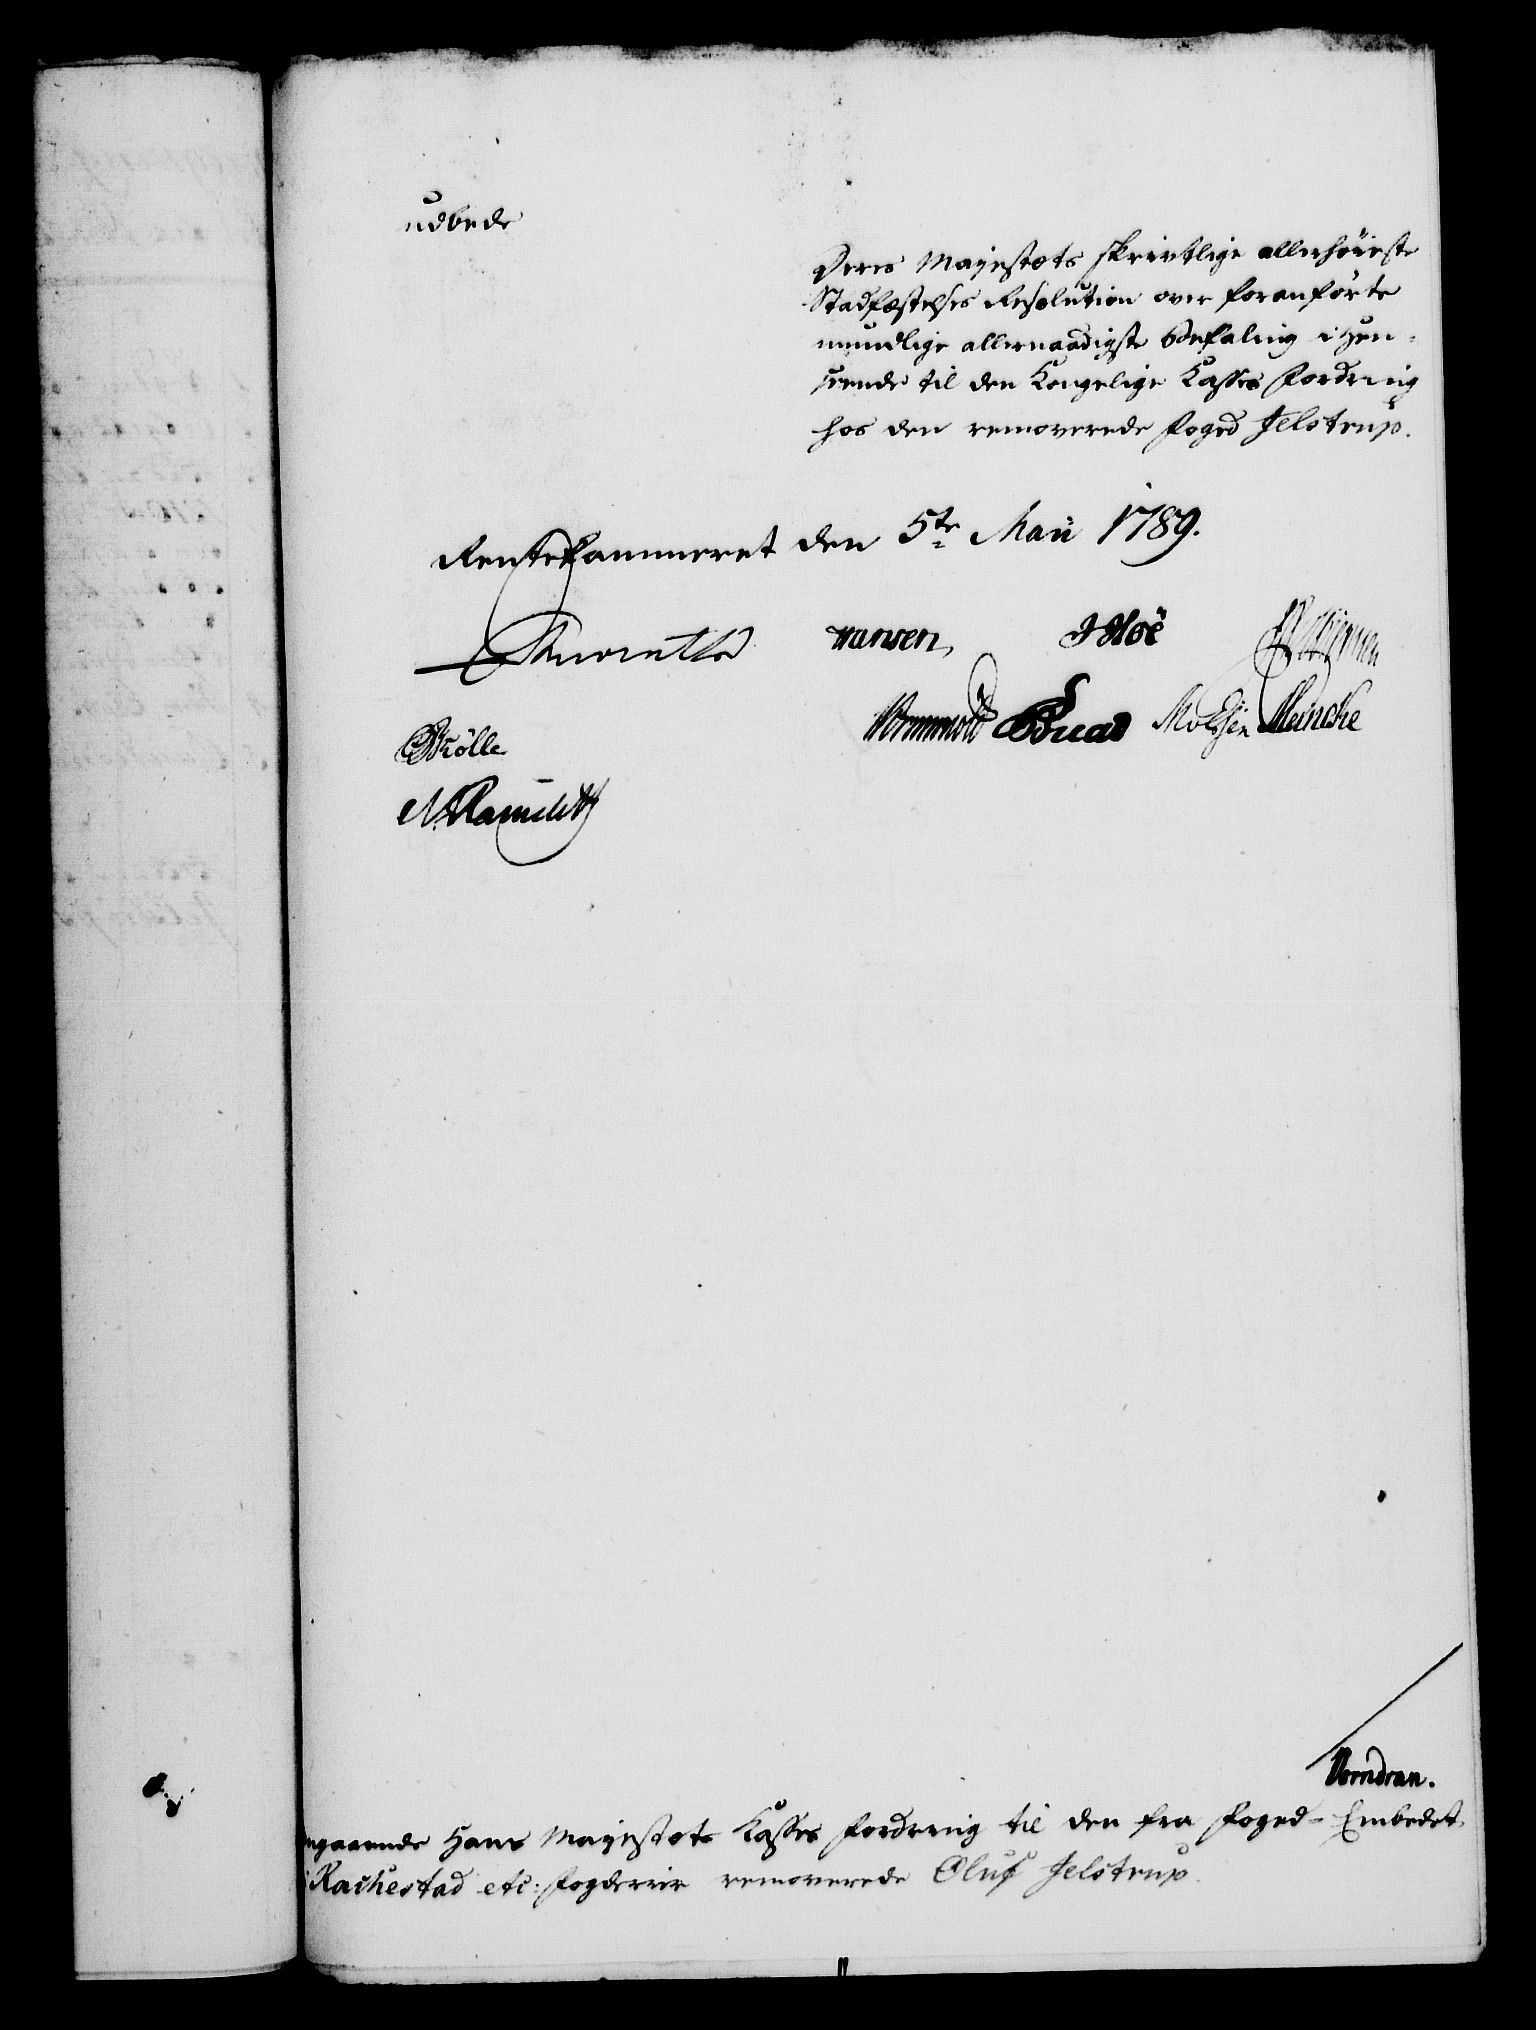 udbede
Deres Majestæts skrivtlige allerhöieste
Stadfæstelses Resolution over foranförte
mundlige allernaadigste Befaling i Hen-
seende til den Kongelige Kasses Fordring
hos den removerede Foged Jelstrup.
Rentekammeret den 5te Maii 1789.
Knouth Hansen, JHoë
Wormwold Meincke
Rölle
Vorndran.
ngaaende Hans Majestæts Kasses Fordring til den fra Foged-Embedet
i Rachestad etc: Fogderier removerede Oluf Jelstrup.